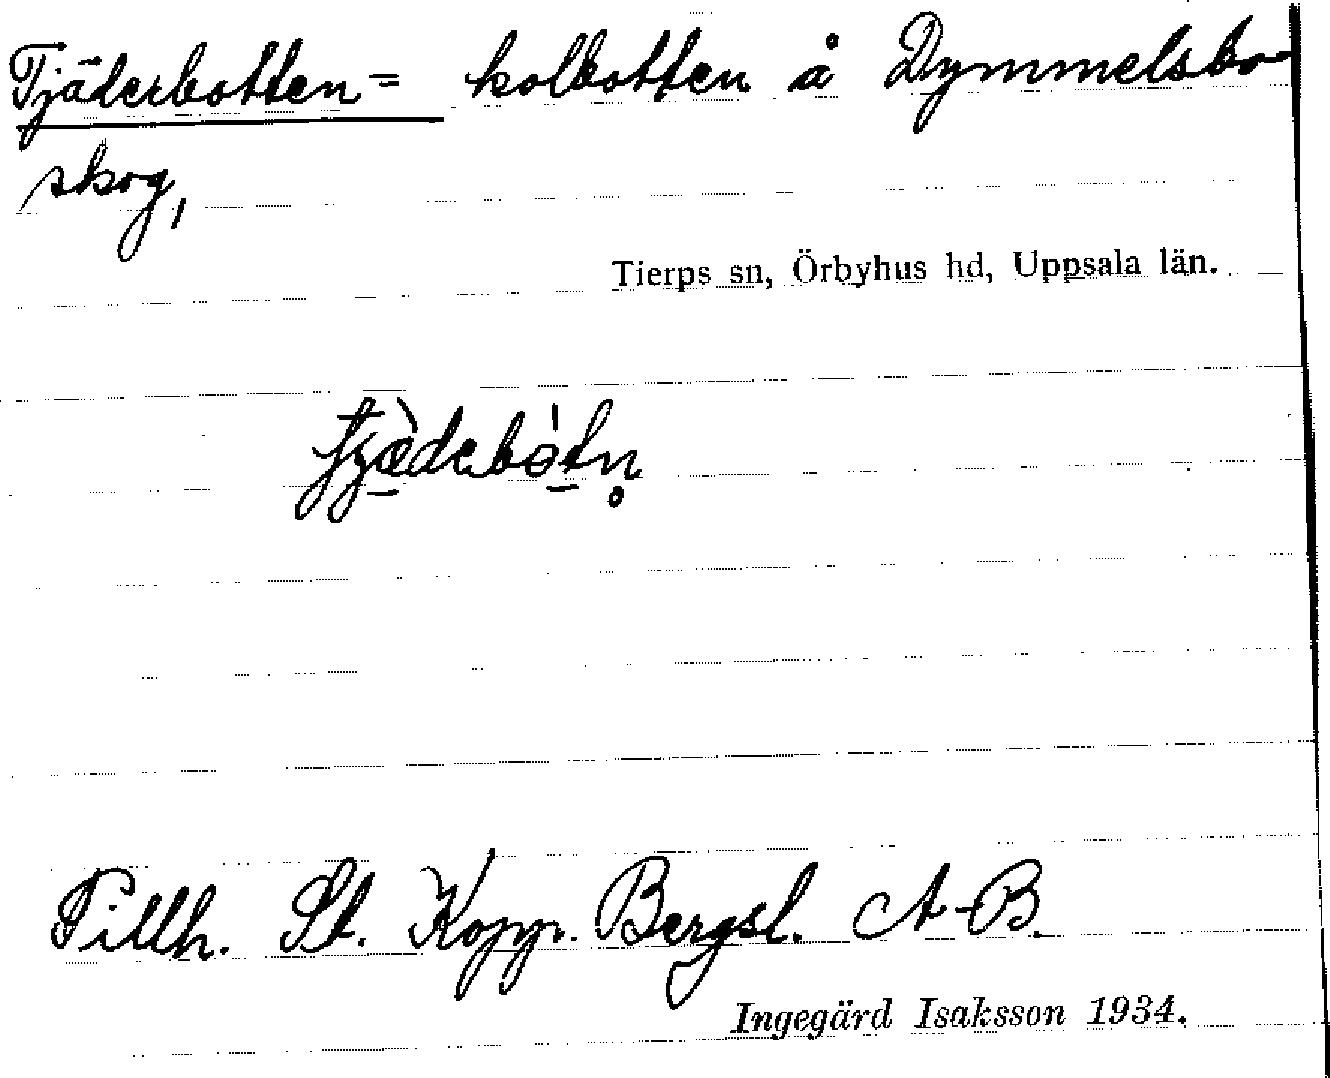 Tjäderbotten = kolbotten å Dymmelsbo
skog,
Tierps sn, Örbyhus hd, Uppsala län.
Tillh. St. Kopp. Bergsl. A-B.
Ingegärd Isaksson 1934.